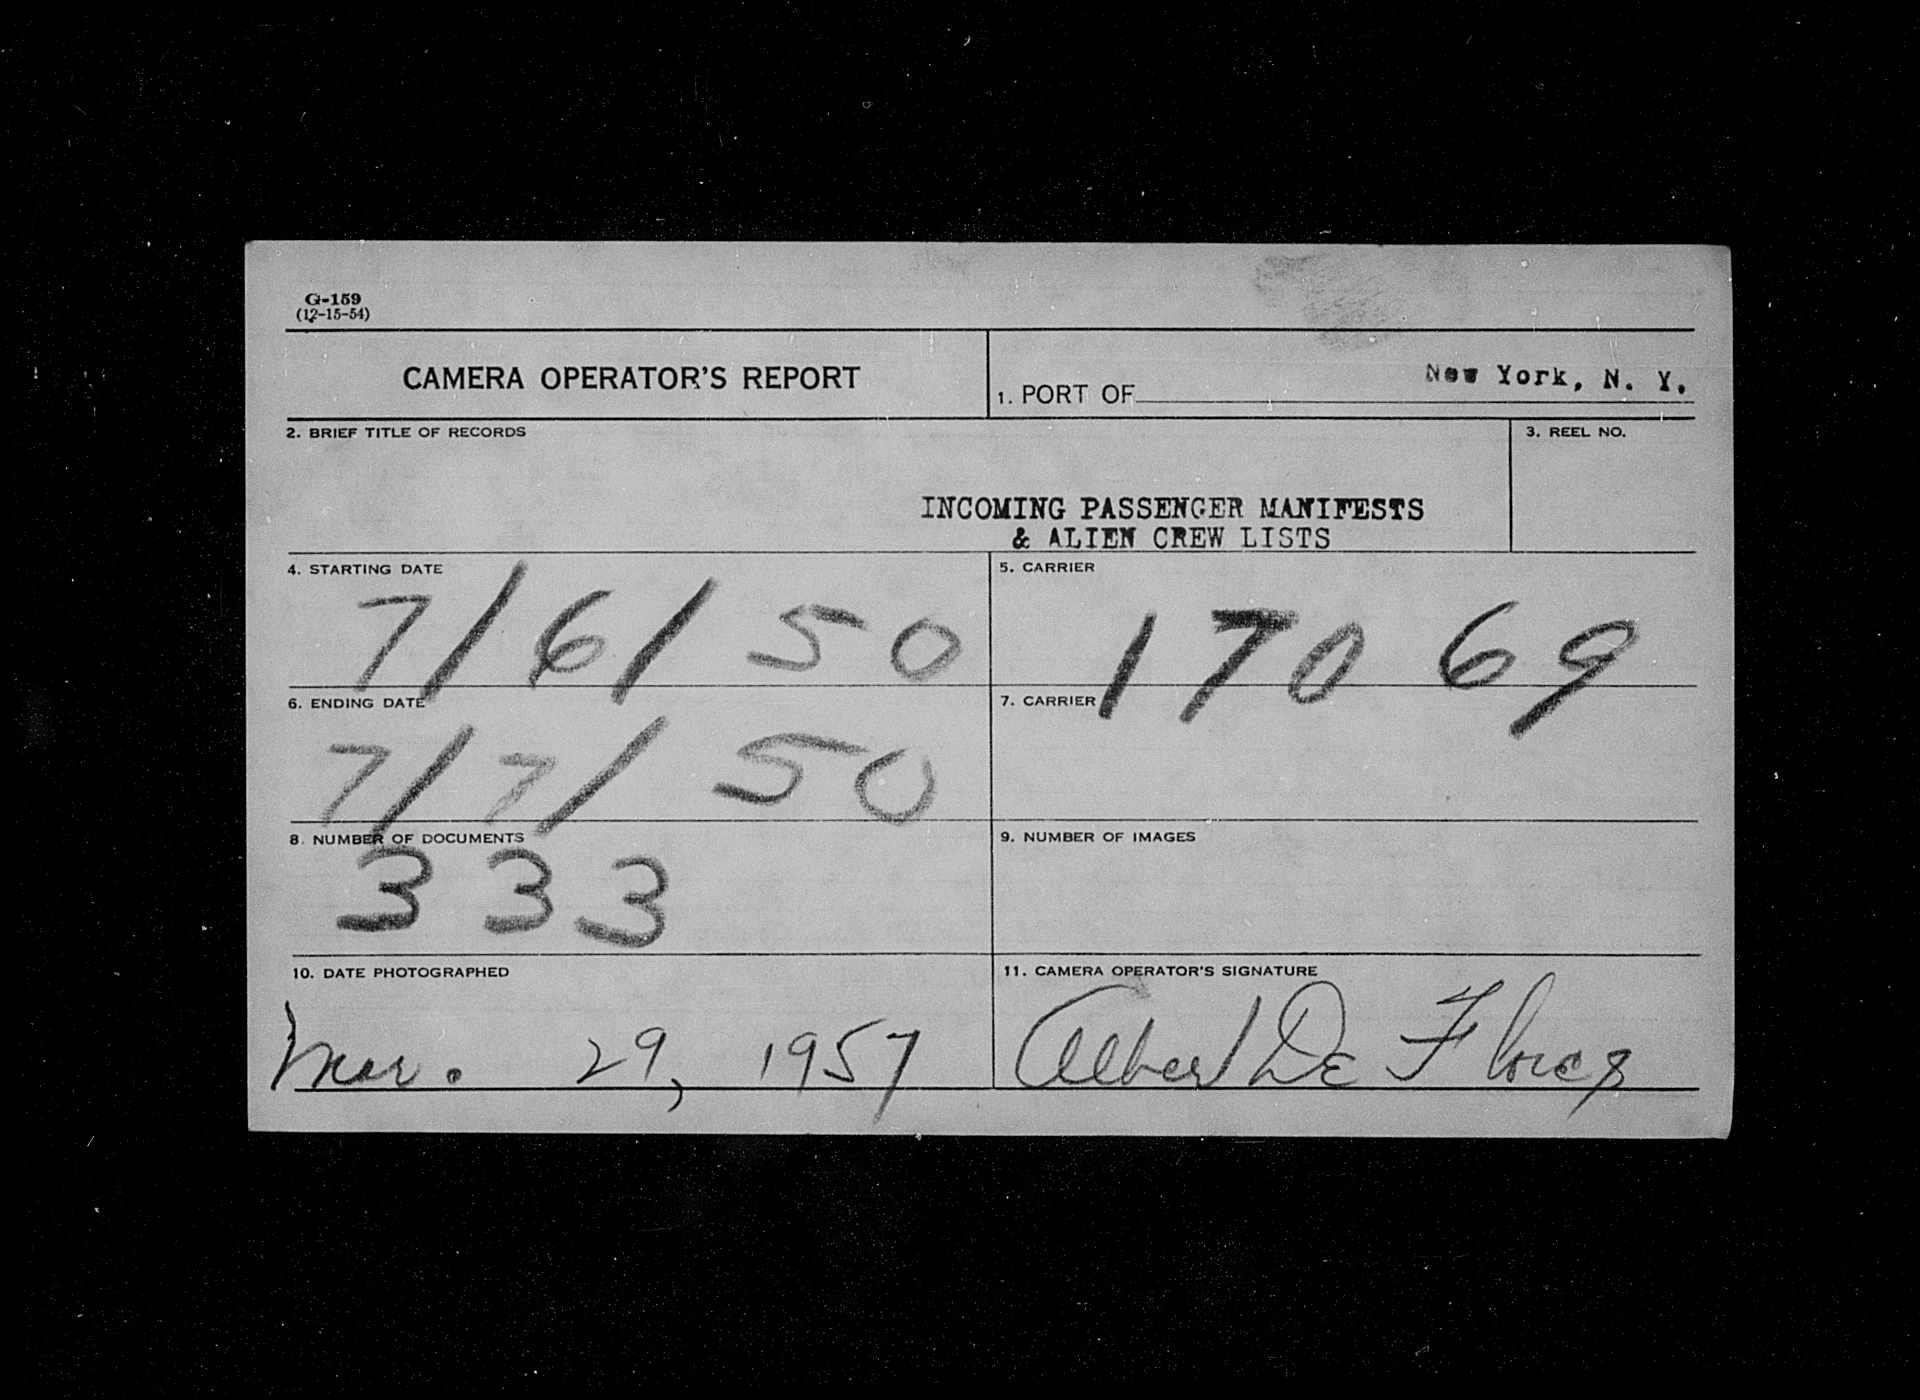 G-159
(12-15-54)
CAMERA OPERATOR'S REPORT
1. PORT OF New York, N. Y.
2. BRIEF TITLE OF RECORDS
3. REEL NO.
INCOMING PASSENGER MANIFESTS
& ALIEN CREW LISTS
4. STARTING DATE
7/6/50
5. CARRIER
17069
6. ENDING DATE
7/7/50
7. CARRIER
8. NUMBER OF DOCUMENTS
333
9. NUMBER OF IMAGES
10. DATE PHOTOGRAPHED
Mar. 29, 1957
11. CAMERA OPERATOR'S SIGNATURE
Albert De Flores